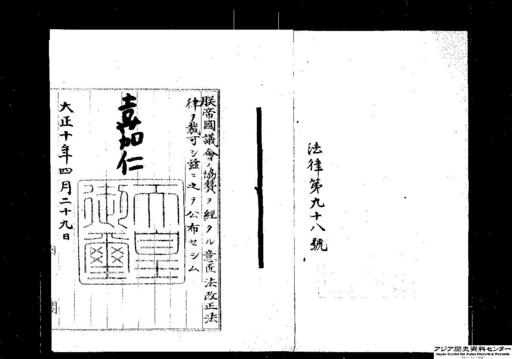 法律第九十八號
朕帝國議會ノ協贊ヲ經タル意匠法改正法
律ヲ裁可シ茲ニ之ヲ公布セシム
嘉仁
天皇
御璽
大正十年四月二十九日
内
閣
アジア歴史資料センター
Japan Center for Asian Historical Records